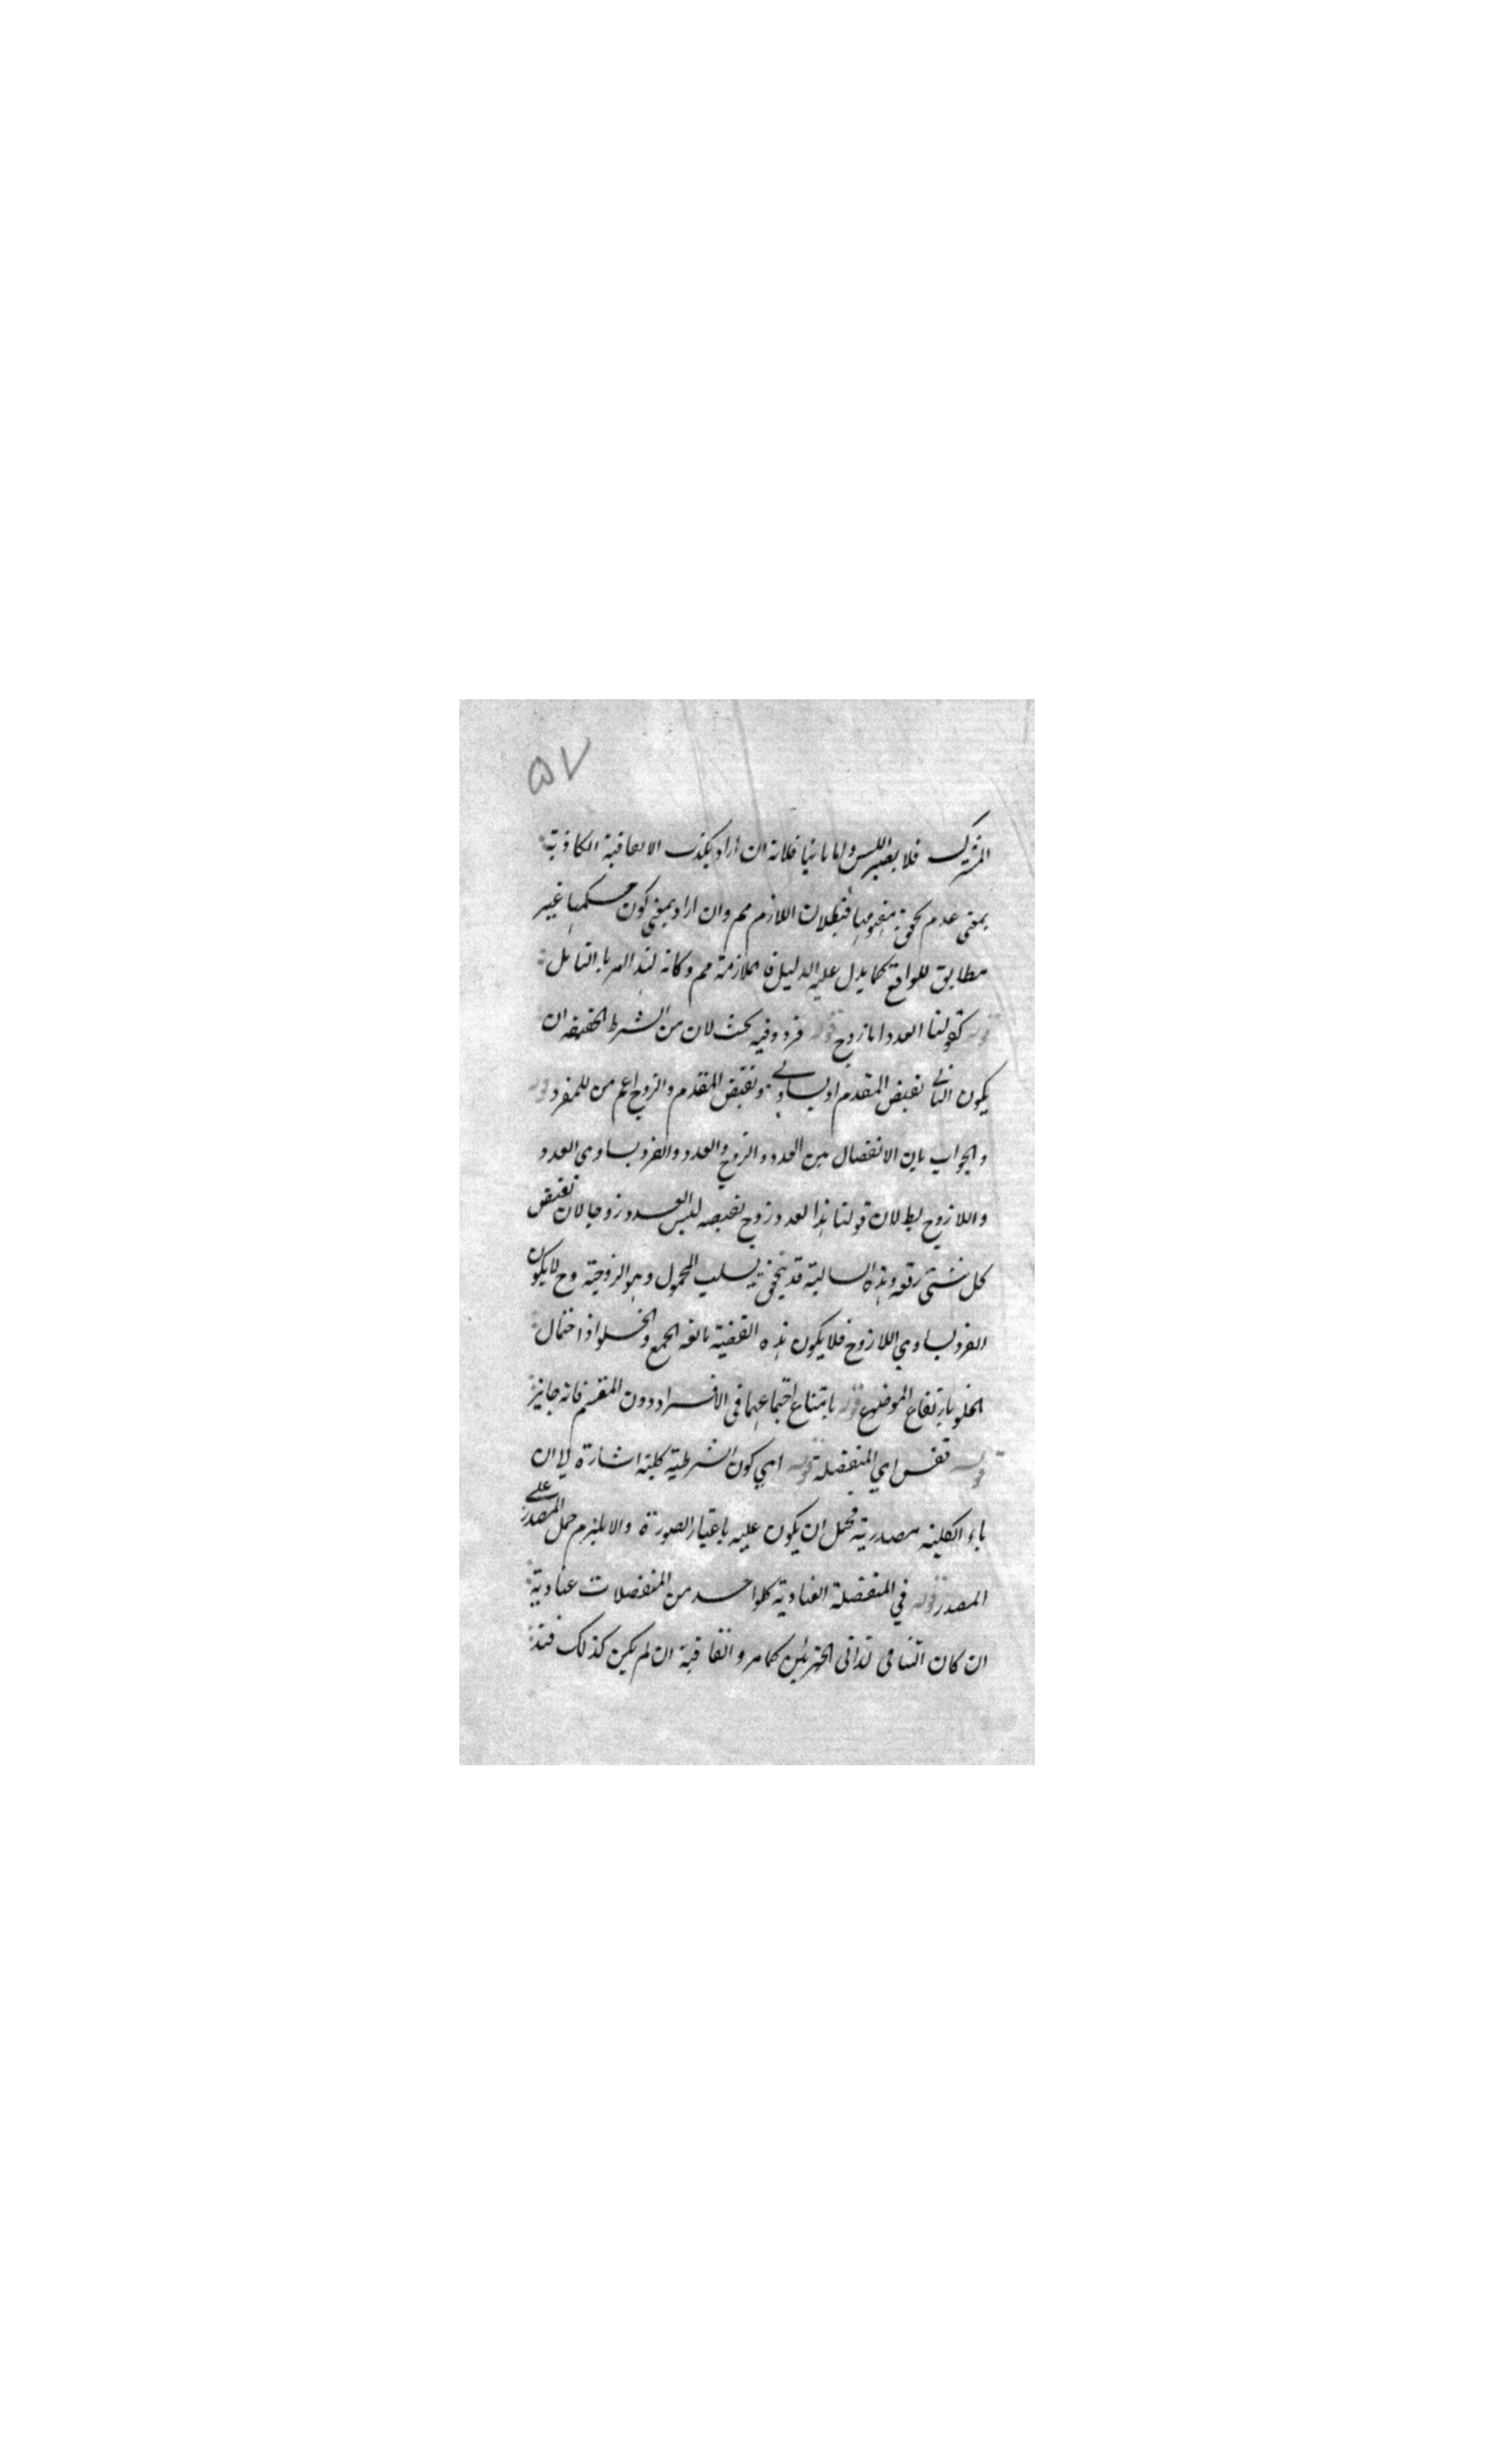 ۵۷
المشترك فلا يعتبر اللبس واما ثانيا فلانه ان اراد بكذب الاتفاقية الكاذبة
بمعنى عدم تحقق مفهومها فبطلان اللازم مم وان اراد بمعنى كون حكمها غير
مطابق للواقع كما يدل عليه الدليل فالملازمة مم وكانه لهذا امر بالتامل
قوله كقولنا العدد اما زوج قوله فرد وفيه بحث لان من الشرط الحقيقه ان
يكون التالى نقيض المقدم او يساوى نقيض المقدم والزوج اعم من للمفرد قوله
والجواب بان الانفصال بين العدد والزوج والعدد والفرد يساوى العدد
واللازوج بط لان قولنا هذا العدد زوج نقيضه ليس العدد زوجا لان نقيض
كل شئ رفعه وهذه السالبة قد يتحقق بسلب المحمول وهو الزوجية وح لا يكون
الفرد يساوي اللازوج فلا يكون هذه القضية مانعه الجمع والخلو اذ احتمال
الخلو بارتفاع الموضوع قوله بامتناع اجتماعهما فى الافراد دون المقسم فانه جايز
قوله نفس اي المنفصلة قوله اي كون الشرطية كلية اشارة الى ان
ياء الكلية مصدرية فحمل ان يكون عليه باعتبار الصورة والا يلزم حمل المصدر على
المصدر قوله في المنفصلة العنادية كلواحد من المنفصلات عنادية
ان كان التنافى لذاتى الجزئين كما مر واتفاقية ان لم يكن كذلك فتد